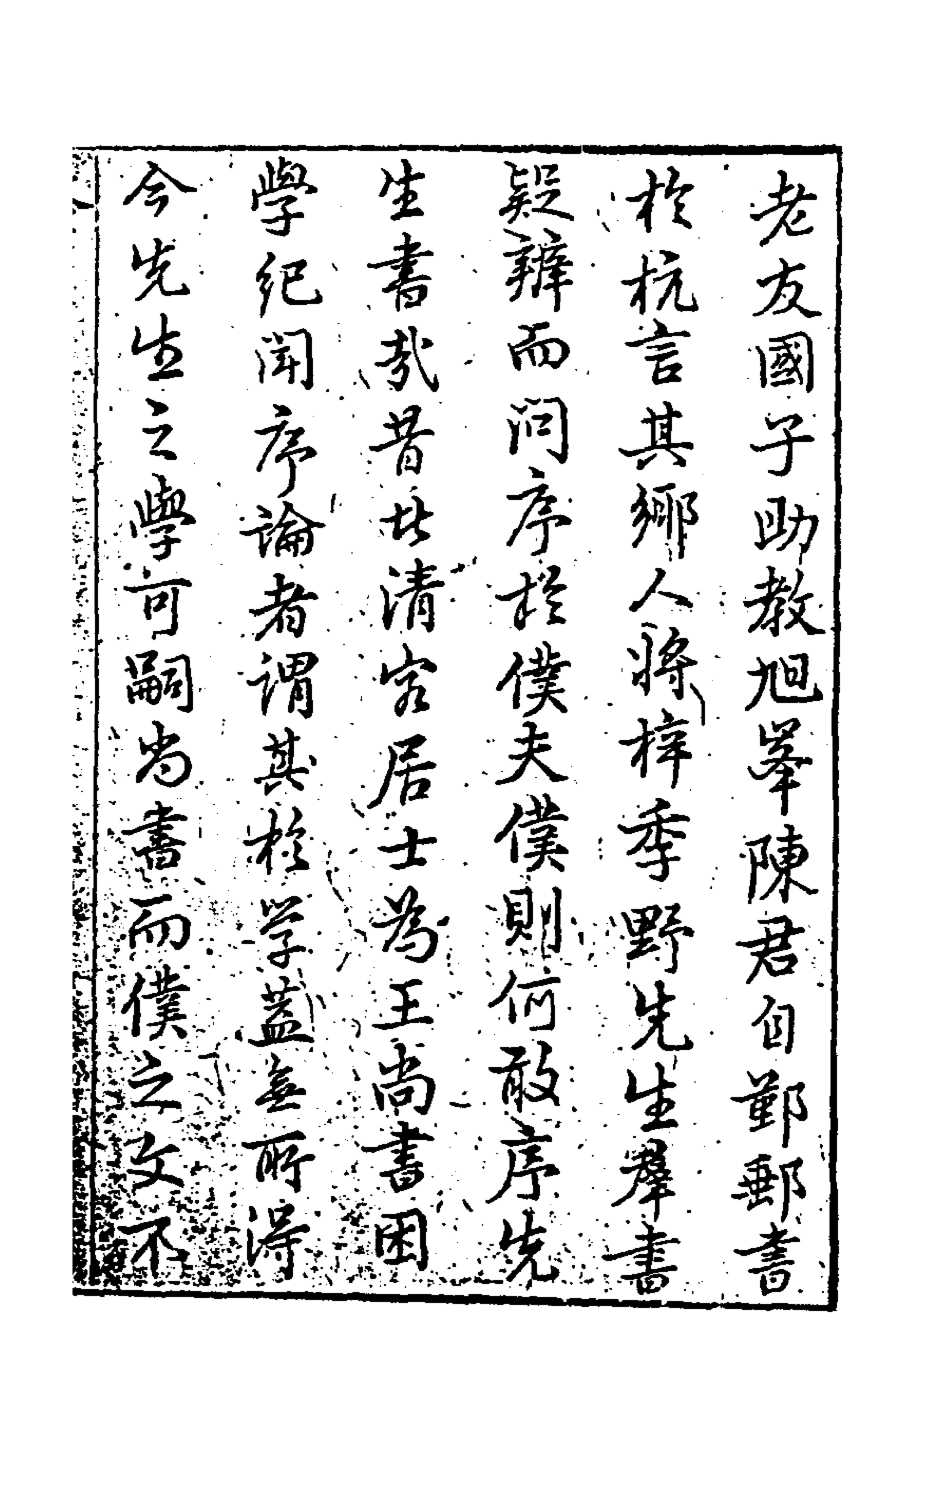 老友國子助教旭峯陳君自鄞郵書
於杭言其鄉人將梓季野先生羣書
疑辨而問序於僕夫僕則何敢序先
生書哉昔者清容居士為王尚書困
學紀聞序論者謂其於学蓋無所得
今先生之學可嗣尚書而僕之文不